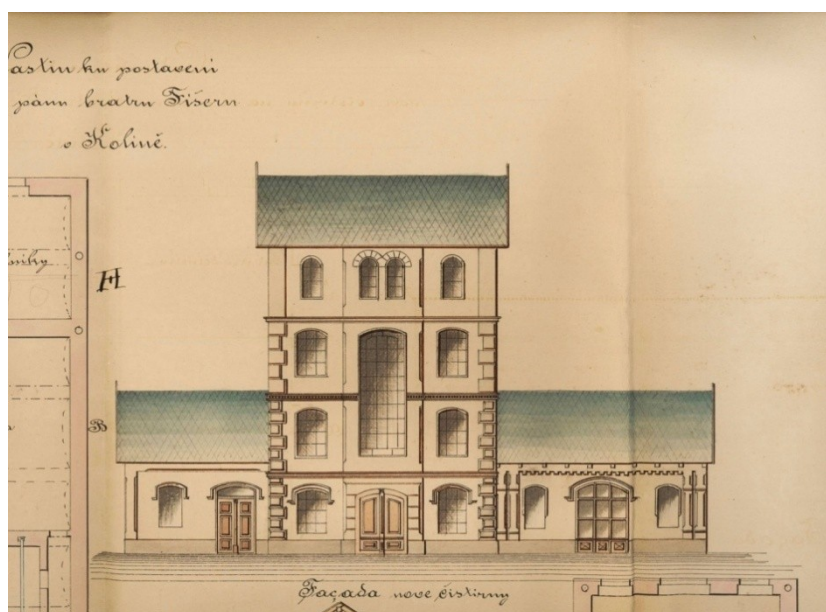 ku postavení
pánu bratru Fišeru
v Kolíně.
H
B
Façada nové čistírny